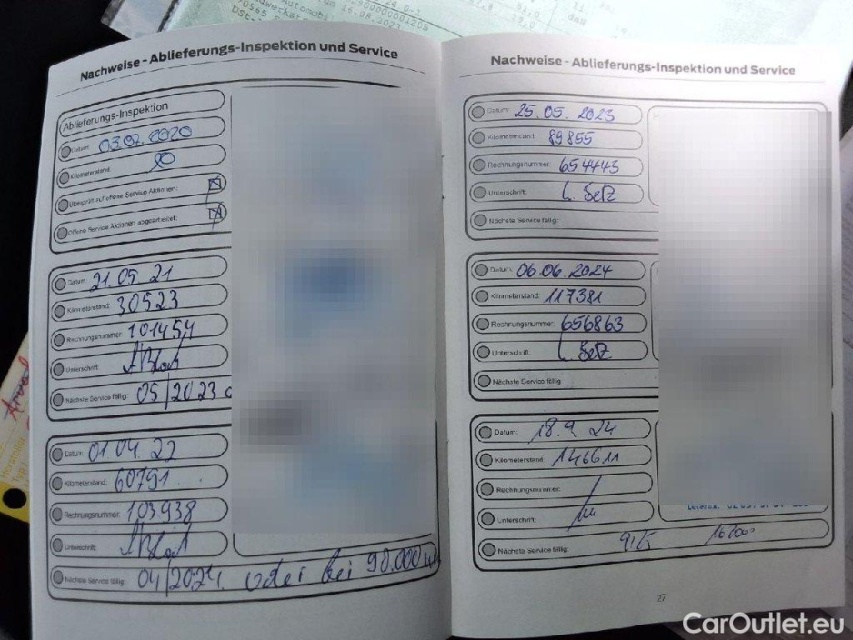 Nachweise - Ablieferungs-Inspektion und Service
Ablieferungs-Inspektion
Datum: 03.02.2020
Kilometerstand:
Überprüft auf offene Service Aktionen:
Offene Service Aktionen abgearbeitet:
Datum: 21.05.21
Kilometerstand: 30523
Rechnungsnummer: 101454
Unterschrift:
Nächste Service fällig: 05/2023
Datum: 01.04.22
Kilometerstand: 60791
Rechnungsnummer: 103938
Unterschrift:
Nächste Service fällig: 04/2024, oder bei 90.000
Nachweise - Ablieferungs-Inspektion und Service
Datum: 25.05.2023
Kilometerstand: 89855
Rechnungsnummer: 654443
Unterschrift:
Nächste Service fällig:
Datum: 06.06.2024
Kilometerstand: 117381
Rechnungsnummer: 656863
Unterschrift:
Nächste Service fällig:
Datum: 18.9.24
Kilometerstand: 146611
Rechnungsnummer:
Unterschrift:
Nächste Service fällig:
27
CarOutlet.eu